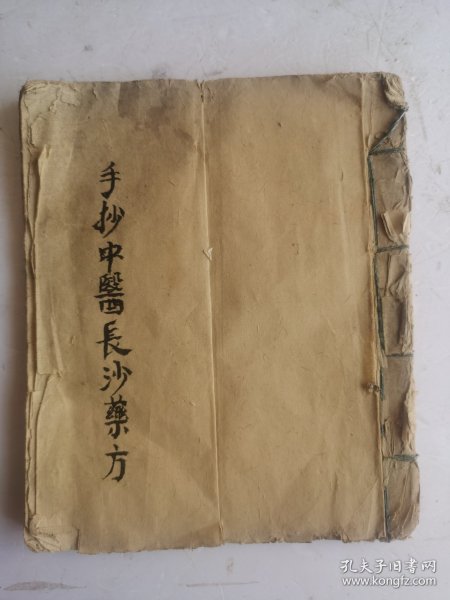 手抄中醫長沙藥方
孔夫子旧书网
www.kongfz.com